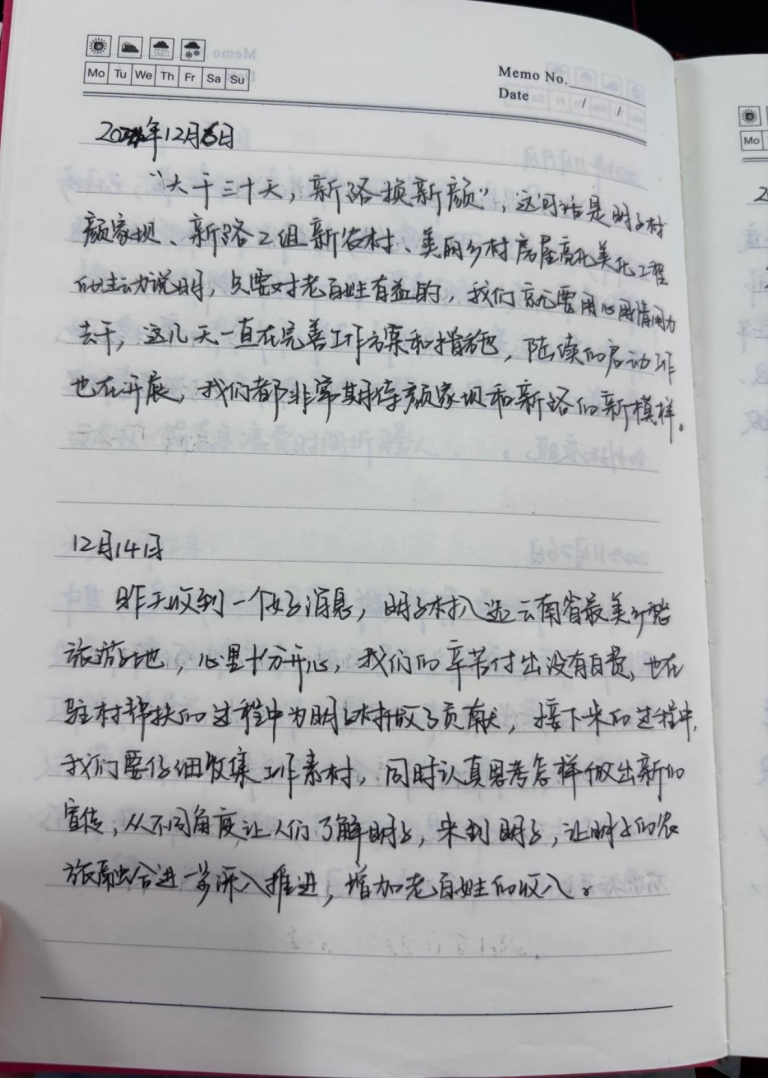 Mo Tu We Th Fr Sa Su
Memo No.
Date / /
年12月6日
“大干三十天，新路换新颜”，这句话是明子村
颜家坝、新路2组新农村、美丽乡村房屋亮化美化工程
的生动说明，只要对老百姓有益的，我们就要用心用情用力
去干，这几天一直在完善工作方案和措施，陆续的启动工作
也在开展，我们都非常期待颜家坝和新路的新模样。
12月14日
昨天收到一个好消息，明子村入选云南省最美乡愁
旅游地，心里十分开心，我们的辛苦付出没有白费，也在
驻村帮扶的过程中为明子村做了贡献，接下来的过程中，
我们要仔细收集工作素材，同时认真思考怎样做出新的
宣传，从不同角度让人们了解明子，来到明子，让明子的农
旅融合进一步深入推进，增加老百姓的收入。
Mo